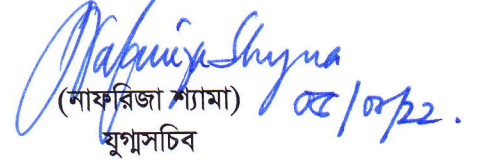 Nafriza Shyma
(নাফরিজা শ্যামা)
যুগ্মসচিব